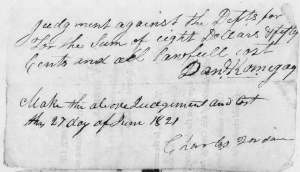 Judgment against the Defts for
for the Sum of eight Dollars & fifty
Cents and all Lawfull Cost
Danl Kornegay
Make the above Judgement and Cost
this 27 day of June 1821
Charles Jordan